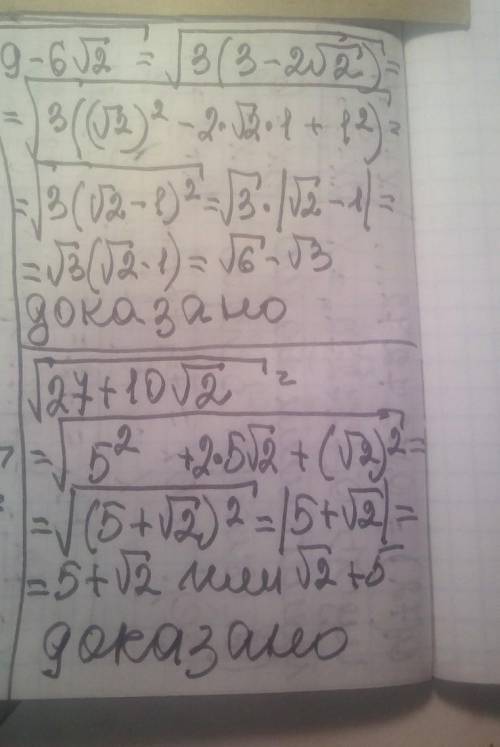 √9-6√2 = √3(3-2√2) =
= √3((√2)² - 2·√2·1 + 1²) =
= √3(√2-1)² = √3·|√2-1| =
= √3(√2-1) = √6-√3
доказано
√27+10√2 =
= √5² +2·5√2 + (√2)² =
= √(5+√2)² = |5+√2| =
= 5+√2 или √2+5
доказано